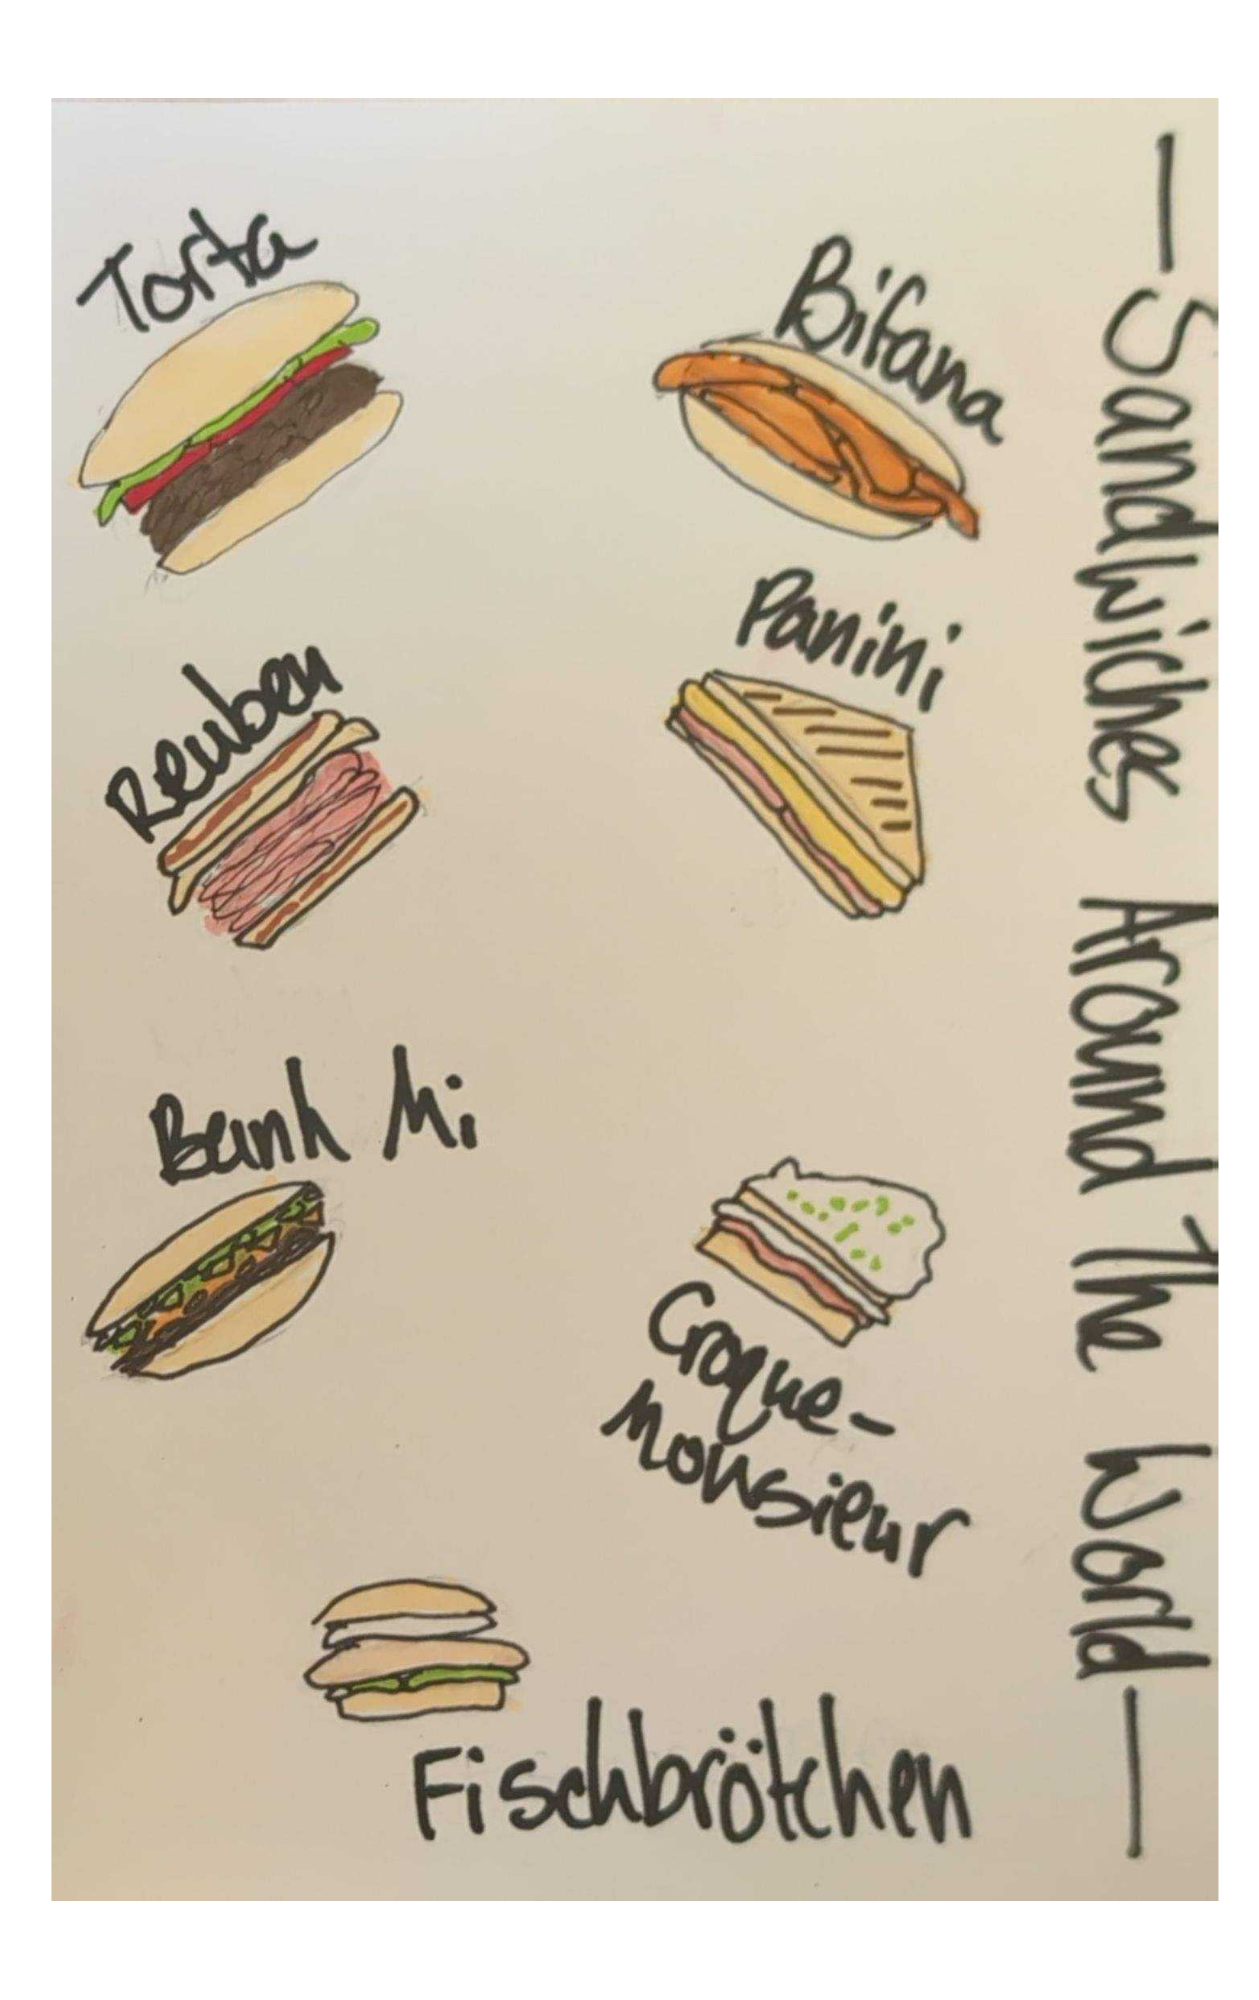 — Sandwiches Around The World —
Torta
Bifana
Panini
Reuben
Banh Mi
Croque-
Monsieur
Fischbrötchen